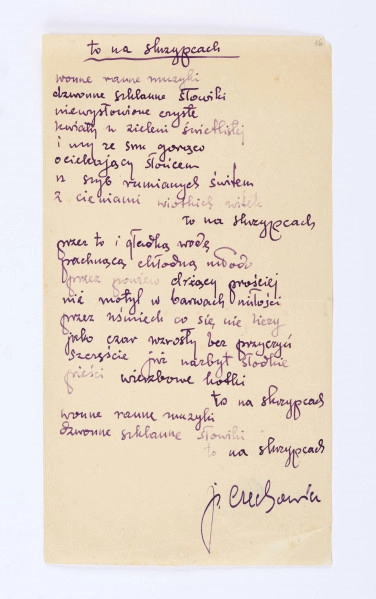 16
to na skrzypcach
wonne ranne muzyki
dzwonne szklanne słowiki
niewysłowione czyste
kwiaty w zieleni świetlistej
i my ze snu gorąco
ociekający słońcem
u szyb rumianych świtem
z cieniami wiotkich witek
to na skrzypcach
przez to i gładką wodę
pachnącą chłodną młodo
przez powiew drżący prościej
niż motyl w barwach miłości
przez uśmiech co się nie liczy
jako czar wzrosły bez przyczyn
szczęście już nazbyt słodkie
pieści wierzbowe kotki
to na skrzypcach
wonne ranne muzyki
dzwonne szklanne słowiki
to na skrzypcach
j. Czechowicz